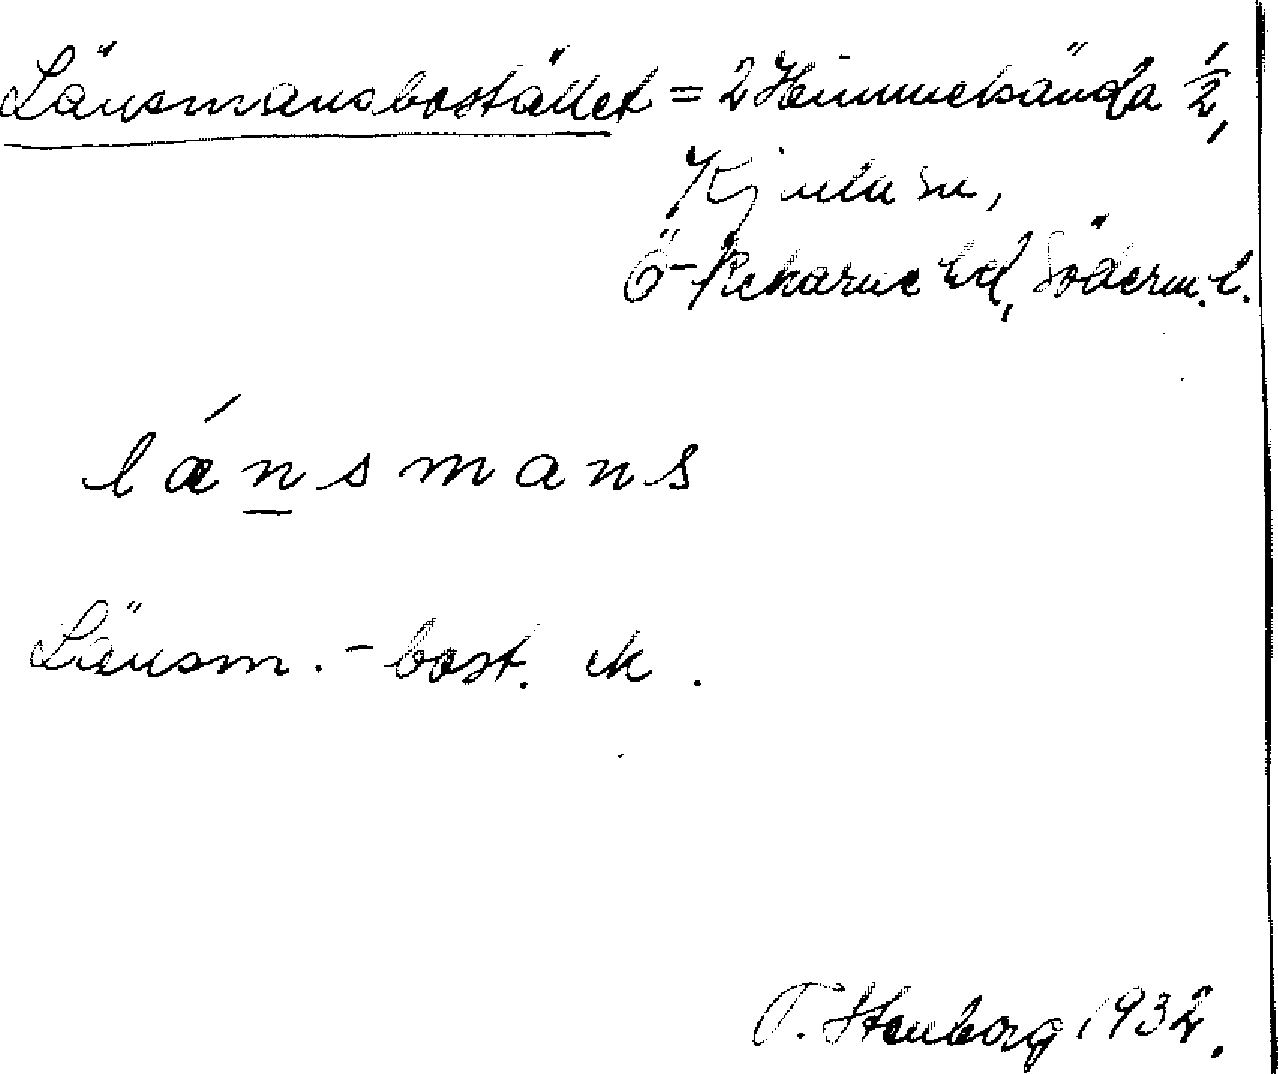 Länsmansbostället = 2 Himmelsända 1/2,
Kjula sn,
Ö-Rekarne hd, Söderm. l.
lánsmans
Länsm.-bost. ek.
T. Stenborg 1932.